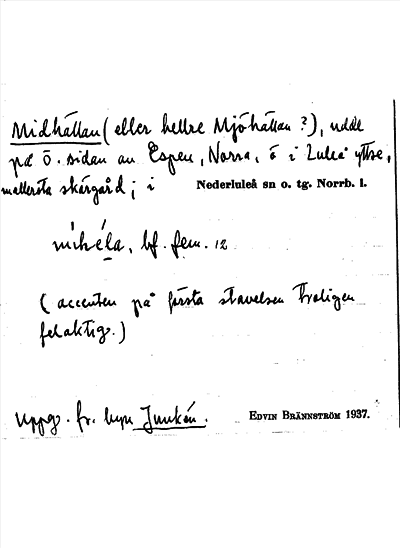 Midhällan (eller hellre Mjöhällan?), udde
på ö. sidan av Espen, Norra, ö i Luleå yttre,
mellersta skärgård; i Nederluleå sn o. tg. Norrb. l.
mìkéla, bf. fem. 12
(accenten på första stavelsen troligen
felaktig.)
Uppg. fr. lnm Junkén.
EDVIN BRÄNNSTRÖM 1937.